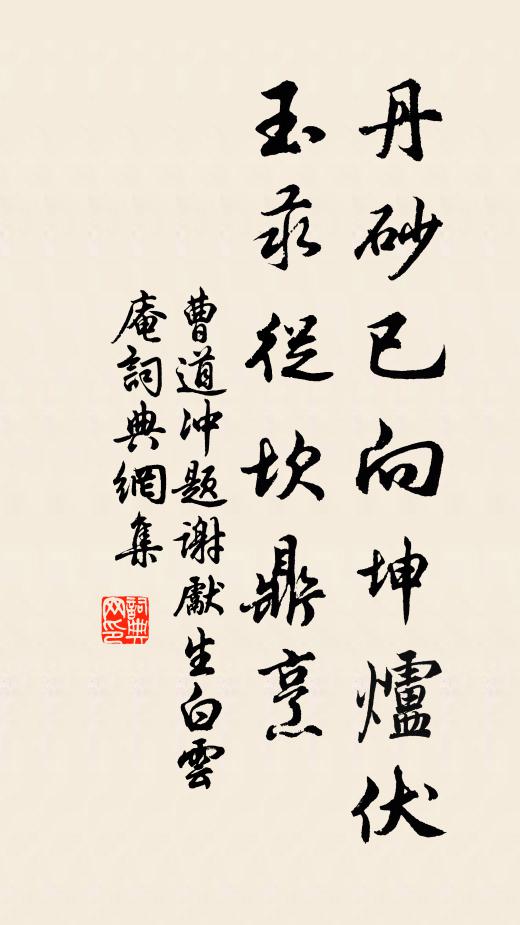 丹砂已向坤爐伏
玉汞從坎鼎烹
曹道冲題謝獻生白雲
庵詞典網集
詞典
网印